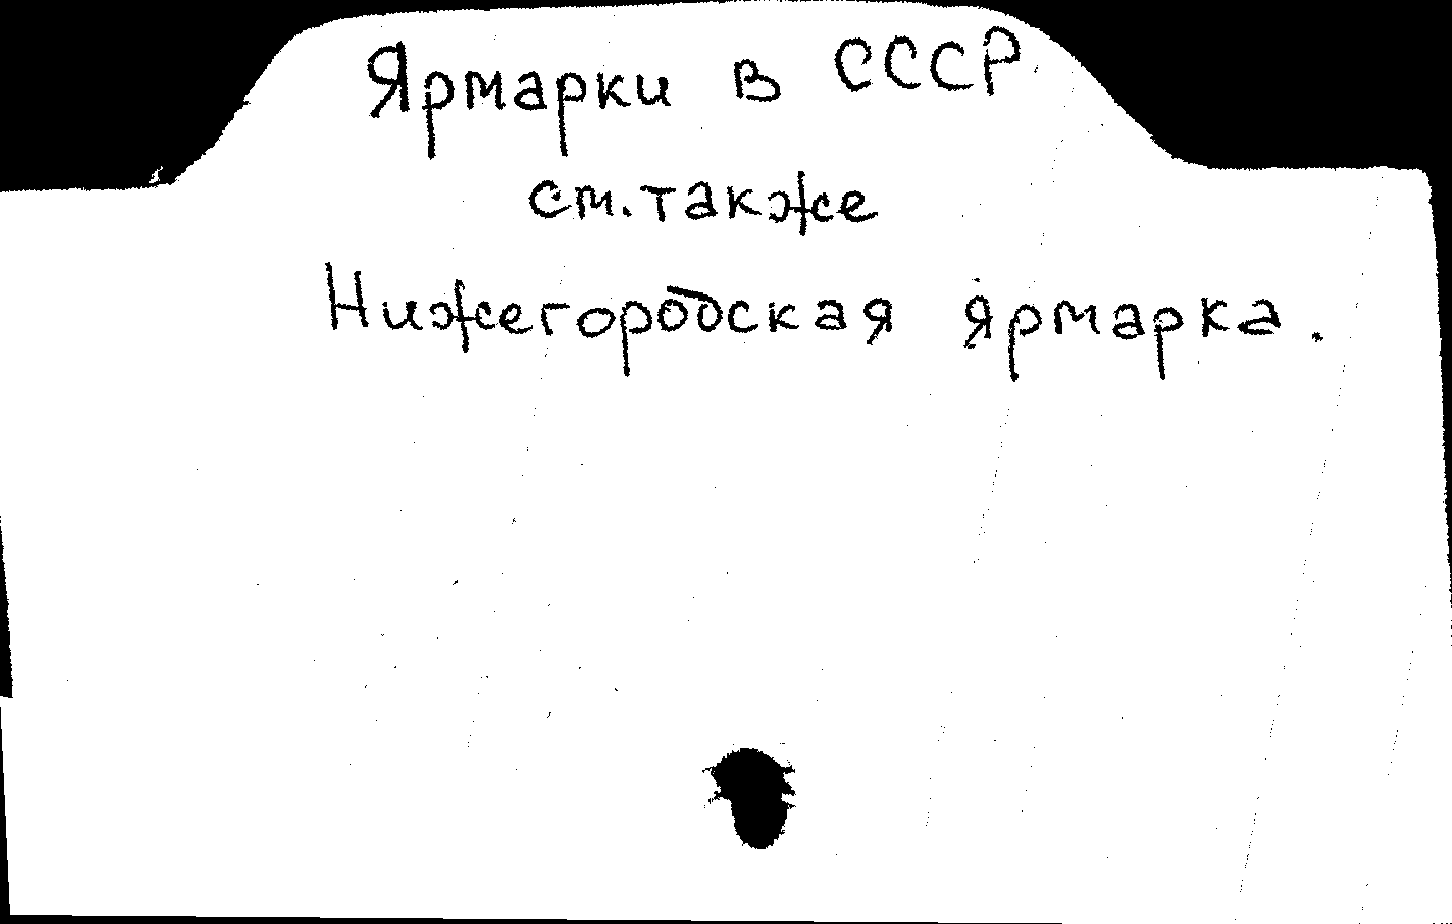 Ярмарки в СССР
см. также
Нижегородская ярмарка.